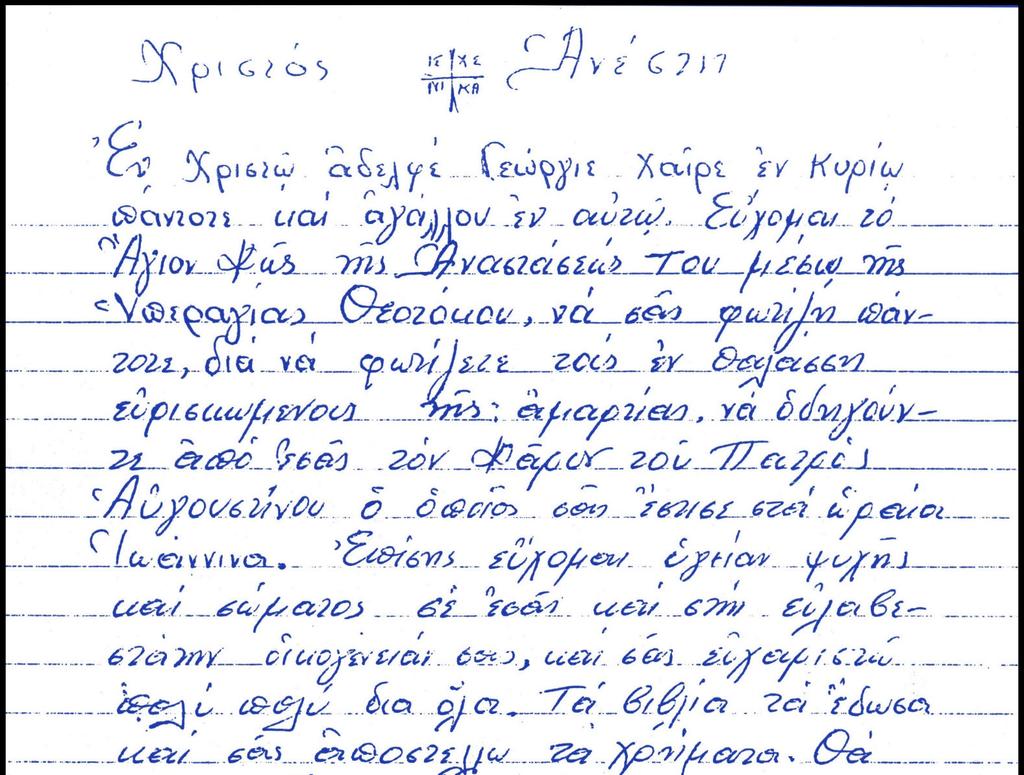 Χριστός ΙΣ ΧΣ ΝΙ ΚΑ Ἀνέστη
Ἐν Χριστῷ ἀδελφέ Γεώργιε χαῖρε ἐν Κυρίῳ
πάντοτε καί ἀγάλλου ἐν αὐτῷ. Εὔχομαι τό
Ἅγιον Φῶς τῆς Ἀναστάσεώς Του μέσῳ τῆς
Ὑπεραγίας Θεοτόκου, νά σᾶς φωτίζῃ πάν-
τοτε, διά νά φωτίζετε τούς ἐν θαλάσσῃ
εὑρισκωμένους τῆς: ἁμαρτίας, νά ὁδηγοῦν-
τε ἀπό ἐσᾶς τόν Φάρον τοῦ Πατρός
Αὐγουστίνου ὁ ὁποῖος σᾶς ἔστησε στά ὡραῖα
Ἰωάννινα. Ἐπίσης εὔχομαι ὑγείαν ψυχῆς
καί σώματος σέ ἐσᾶς καί στήν εὐλαβε-
στάτην οἰκογένειάν σας, καί σᾶς εὐχαριστῶ
πολύ πολύ δια ὅλα. Τά βιβλία τά ἔδωσα
καί σᾶς ἀποστέλλω τα χρήματα. Θά